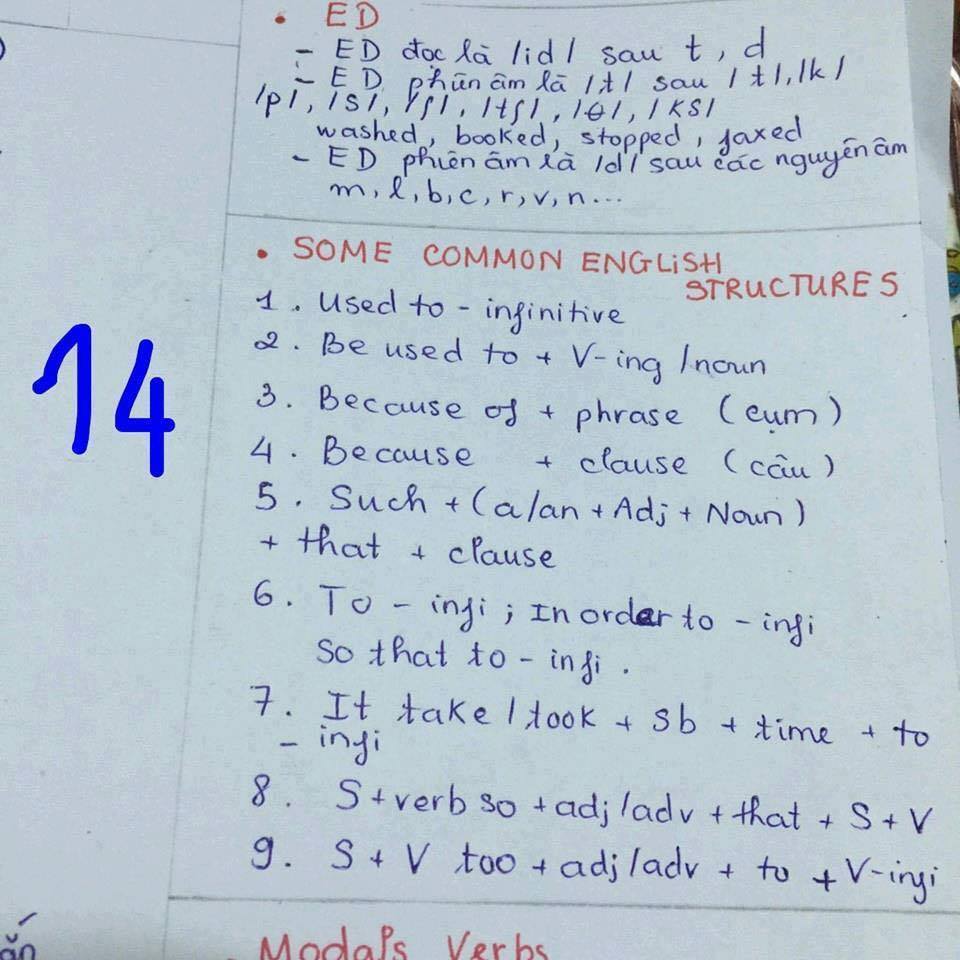 • ED
- ED đọc là /id/ sau t, d
- ED phiên âm là /t/ sau /t/, /k/
/p/, /s/, /ʃ/, /tʃ/, /θ/, /ks/
washed, booked, stopped, faxed
- ED phiên âm là /d/ sau các nguyên âm
m, l, b, c, r, v, n...
• SOME COMMON ENGLiSH
STRUCTURES
1. Used to - infinitive
2. Be used to + V-ing /noun
3. Because of + phrase (cụm)
4. Because + clause (câu)
14
5. Such + (a/an + Adj + Noun)
+ that + clause
6. To - infi ; In order to - infi
So that to - infi.
7. It take / took + Sb + time + to
- infi
8. S + verb so + adj/adv + that + S + V
9. S + V too + adj/adv + to + V-infi
. Modals Verbs